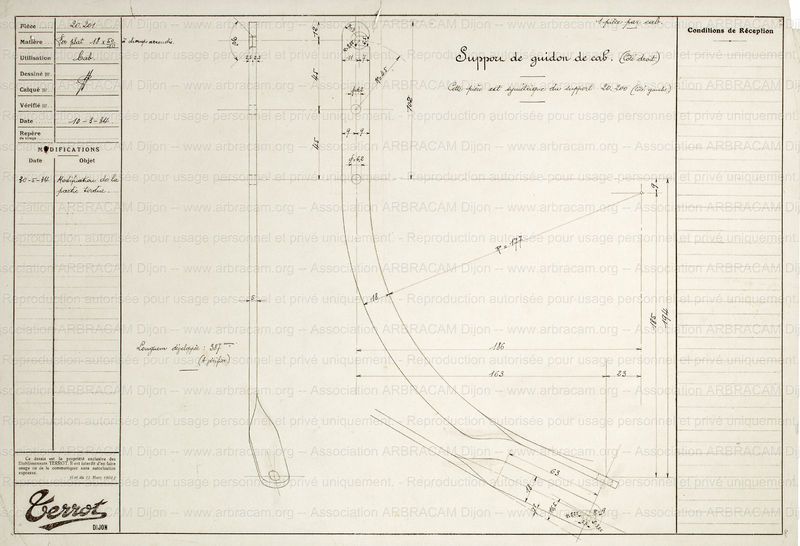 Pièce 20.201
Matière Fer plat 18 x 5 à champs arrondis
Utilisation Cab.
Dessiné
Calqué
Vérifié
Date 10-3-34
Repère
MODIFICATIONS
Date Objet
30-5-34 Modification de la
partie tordue.
1 pièce par cab.
Support de guidon de cab. (côté droit)
Cette pièce est symétrique du support 20.200 (côté gauche)
Conditions de Réception
12
45
45
102
9 9
R = 127
18
5
9
185
194
186
163 23
63
18
Longueur développée : 387
(à vérifier)
Ce dessin est la propriété exclusive des
Etablissements TERROT. Il est interdit d'en faire
usage ou de le communiquer sans autorisation
expresse.
Terrot
DIJON
Association ARBRACAM Dijon -- www.arbracam.org -- Association ARBRACAM Dijon -- www.arbracam.org
Reproduction autorisée pour usage personnel et privé uniquement. - Reproduction autorisée pour usage personnel et privé uniquement.